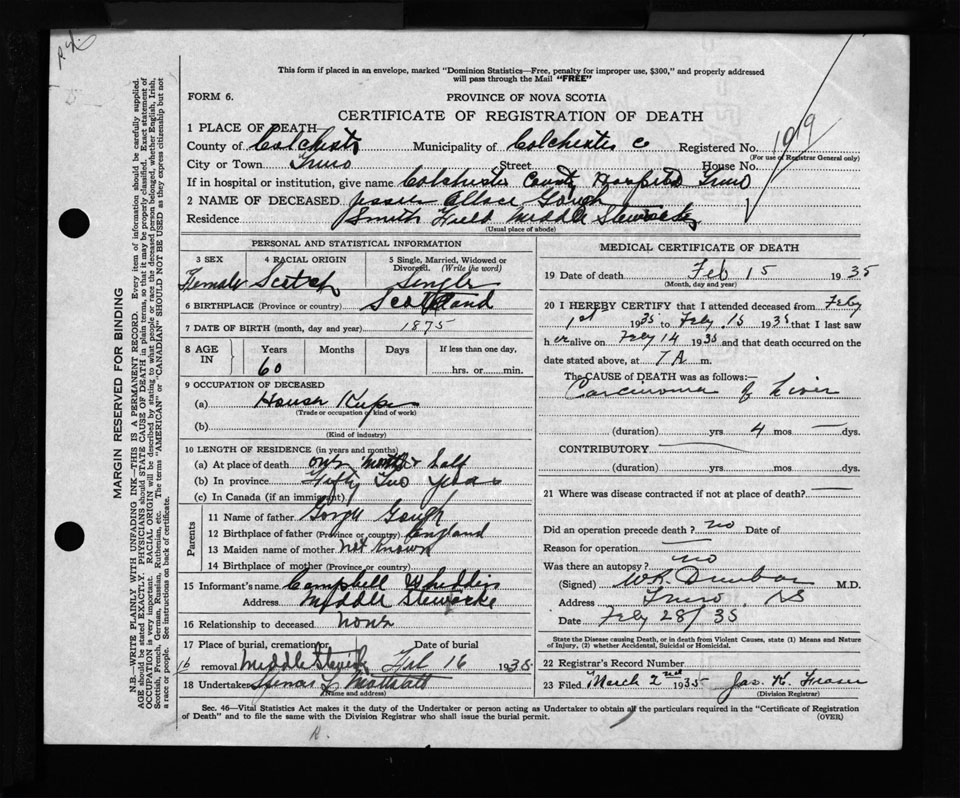 This form if placed in an envelope, marked "Dominion Statistics—Free, penalty for improper use, $300," and properly addressed
will pass through the Mail "FREE"
FORM 6.
PROVINCE OF NOVA SCOTIA
CERTIFICATE OF REGISTRATION OF DEATH
1919
1 PLACE OF DEATH—
County of Colchester Municipality of Colchester Co Registered No.
(For use of Registrar General only)
City or Town Truro Street House No.
If in hospital or institution, give name Colchester County Hospital Truro
2 NAME OF DECEASED Jessie Gough
Residence Smith Field Middle Stewiacke
(Usual place of abode)
PERSONAL AND STATISTICAL INFORMATION
3 SEX 4 RACIAL ORIGIN 5 Single, Married, Widowed or Divorced. (Write the word)
Female Scotch Single
6 BIRTHPLACE (Province or country) Scotland
7 DATE OF BIRTH (month, day and year) 1875
8 AGE IN Years Months Days If less than one day,
60 hrs. or min.
9 OCCUPATION OF DECEASED
(a) House Keeper
(Trade or occupation or kind of work)
(b)
(Kind of industry)
10 LENGTH OF RESIDENCE (in years and months)
(a) At place of death one month & half
(b) In province Fifty Two Years
(c) In Canada (if an immigrant)
Parents
11 Name of father George Gough
12 Birthplace of father (Province or country) England
13 Maiden name of mother Not Known
14 Birthplace of mother (Province or country)
15 Informant's name Campbell Whiddin
Address Middle Stewiacke
16 Relationship to deceased none
17 Place of burial, cremation or removal Middle Stewiacke Date of burial Feb 16 1935
18 Undertaker
(Name and address)
MEDICAL CERTIFICATE OF DEATH
19 Date of death Feb 15 1935
(Month, day and year)
20 I HEREBY CERTIFY that I attended deceased from Feby
1st 1935 to Feby. 15 1935 that I last saw
her alive on Feby 14 1935 and that death occurred on the
date stated above, at 7 A m.
The CAUSE OF DEATH was as follows:—
Carcinoma of Liver
(duration) yrs. 4 mos. dys.
CONTRIBUTORY
(duration) yrs. mos. dys.
21 Where was disease contracted if not at place of death?
Did an operation precede death? no Date of
Reason for operation
Was there an autopsy? no
(Signed) W.R. Dunbar M.D.
Address Truro, NS
Date Feby 28/35
State the Disease causing Death, or in death from Violent Causes, state (1) Means and Nature
of Injury, (2) whether Accidental, Suicidal or Homicidal.
22 Registrar's Record Number
23 Filed March 2nd 1935 Jas. K. Fraser
(Division Registrar)
Sec. 46—Vital Statistics Act makes it the duty of the Undertaker or person acting as Undertaker to obtain all the particulars required in the "Certificate of Registration
of Death" and to file the same with the Division Registrar who shall issue the burial permit.
(OVER)
MARGIN RESERVED FOR BINDING
N.B.—WRITE PLAINLY WITH UNFADING INK—THIS IS A PERMANENT RECORD. Every item of information should be carefully supplied.
AGE should be stated EXACTLY. PHYSICIANS should STATE CAUSE OF DEATH in plain terms, so that it may be properly classified. Exact statement of
OCCUPATION is very important. RACIAL ORIGIN will be described by stating to what people or race the deceased person belonged, whether English, Irish,
Scottish, French, German, Russian, Ruthenian, etc. The terms "AMERICAN" or "CANADIAN" SHOULD NOT BE USED as they express citizenship but not
a race or people. See instructions on back of certificate.